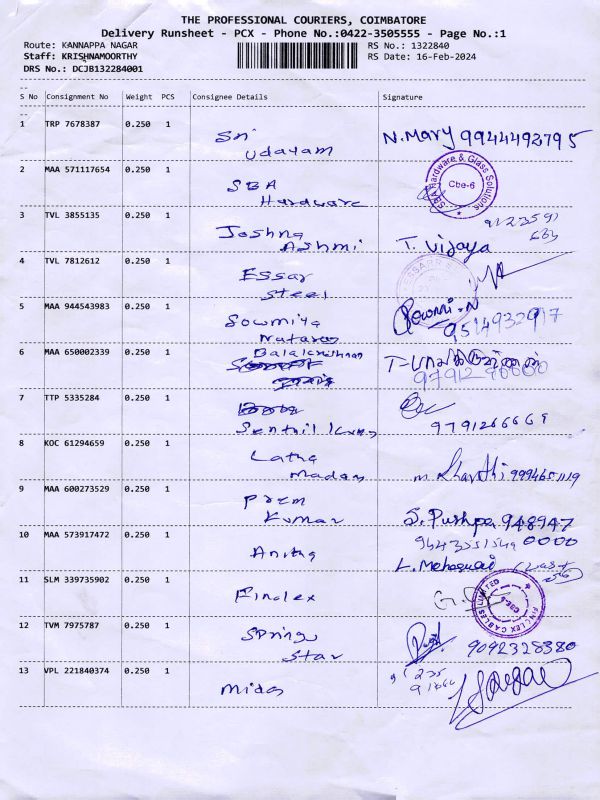 THE PROFESSIONAL COURIERS, COIMBATORE
Delivery Runsheet - PCX - Phone No.:0422-3505555 - Page No.:1
Route: KANNAPPA NAGAR
RS No.: 1322840
Staff: KRISHNAMOORTHY
RS Date: 16-Feb-2024
DRS No.: DCJB132284001
S No Consignment No Weight PCS Consignee Details Signature
1 TRP 7678387 0.250 1 Sri N.Mary 9944492795
Udayam
2 MAA 571117654 0.250 1 SBA
Hardware
SBA Hardware & Glass Solutions
Cbe-6
3 TVL 3855135 0.250 1 Joshna
Ashmi T. Vijaya
4 TVL 7812612 0.250 1 Essar
Steel
5 MAA 944543983 0.250 1 Sowmiya Sowmi.N
Nataraj 9514932917
6 MAA 650002339 0.250 1 Balakrishnan
7 TTP 5335284 0.250 1
Senthil 9791266669
8 KOC 61294659 0.250 1 Latha
Madam
9 MAA 600273529 0.250 1 Prem S. Pushpa 948947
Kumar 0000
10 MAA 573917472 0.250 1 Anitha
11 SLM 339735902 0.250 1 Finolex
FINOLEX CABLES LIMITED
12 TVM 7975787 0.250 1 Spring
Star 9092328380
13 VPL 221840374 0.250 1 Midas